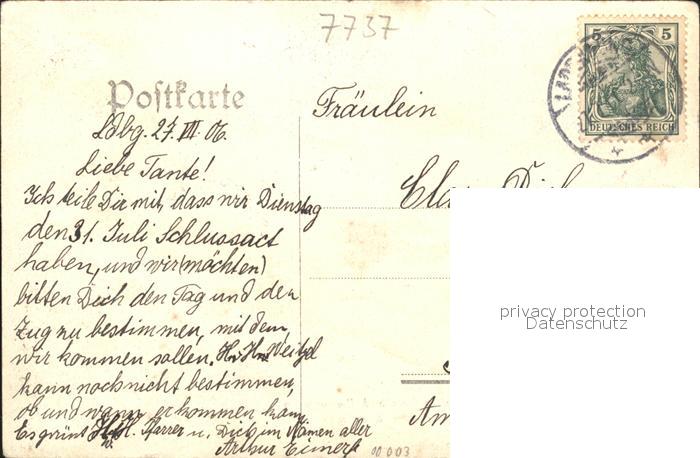 7737
5 5
DEUTSCHES REICH
Postkarte
Fräulein
Ldbg. 27. VII. 06.
Liebe Tante!
Ich teile Dir mit, dass wir Dienstag
den 31. Juli Schlussact
haben, und wir (möchten)
bitten Dich den Tag und den
Zug zu bestimmen, mit dem
wir kommen sollen. H. H. Weitzel
kann noch nicht bestimmen,
ob und wann er kommen kann
Es grüsst H. H. Pfarrer u. Dich im Namen aller
Arthur
00003
privacy protection
Datenschutz